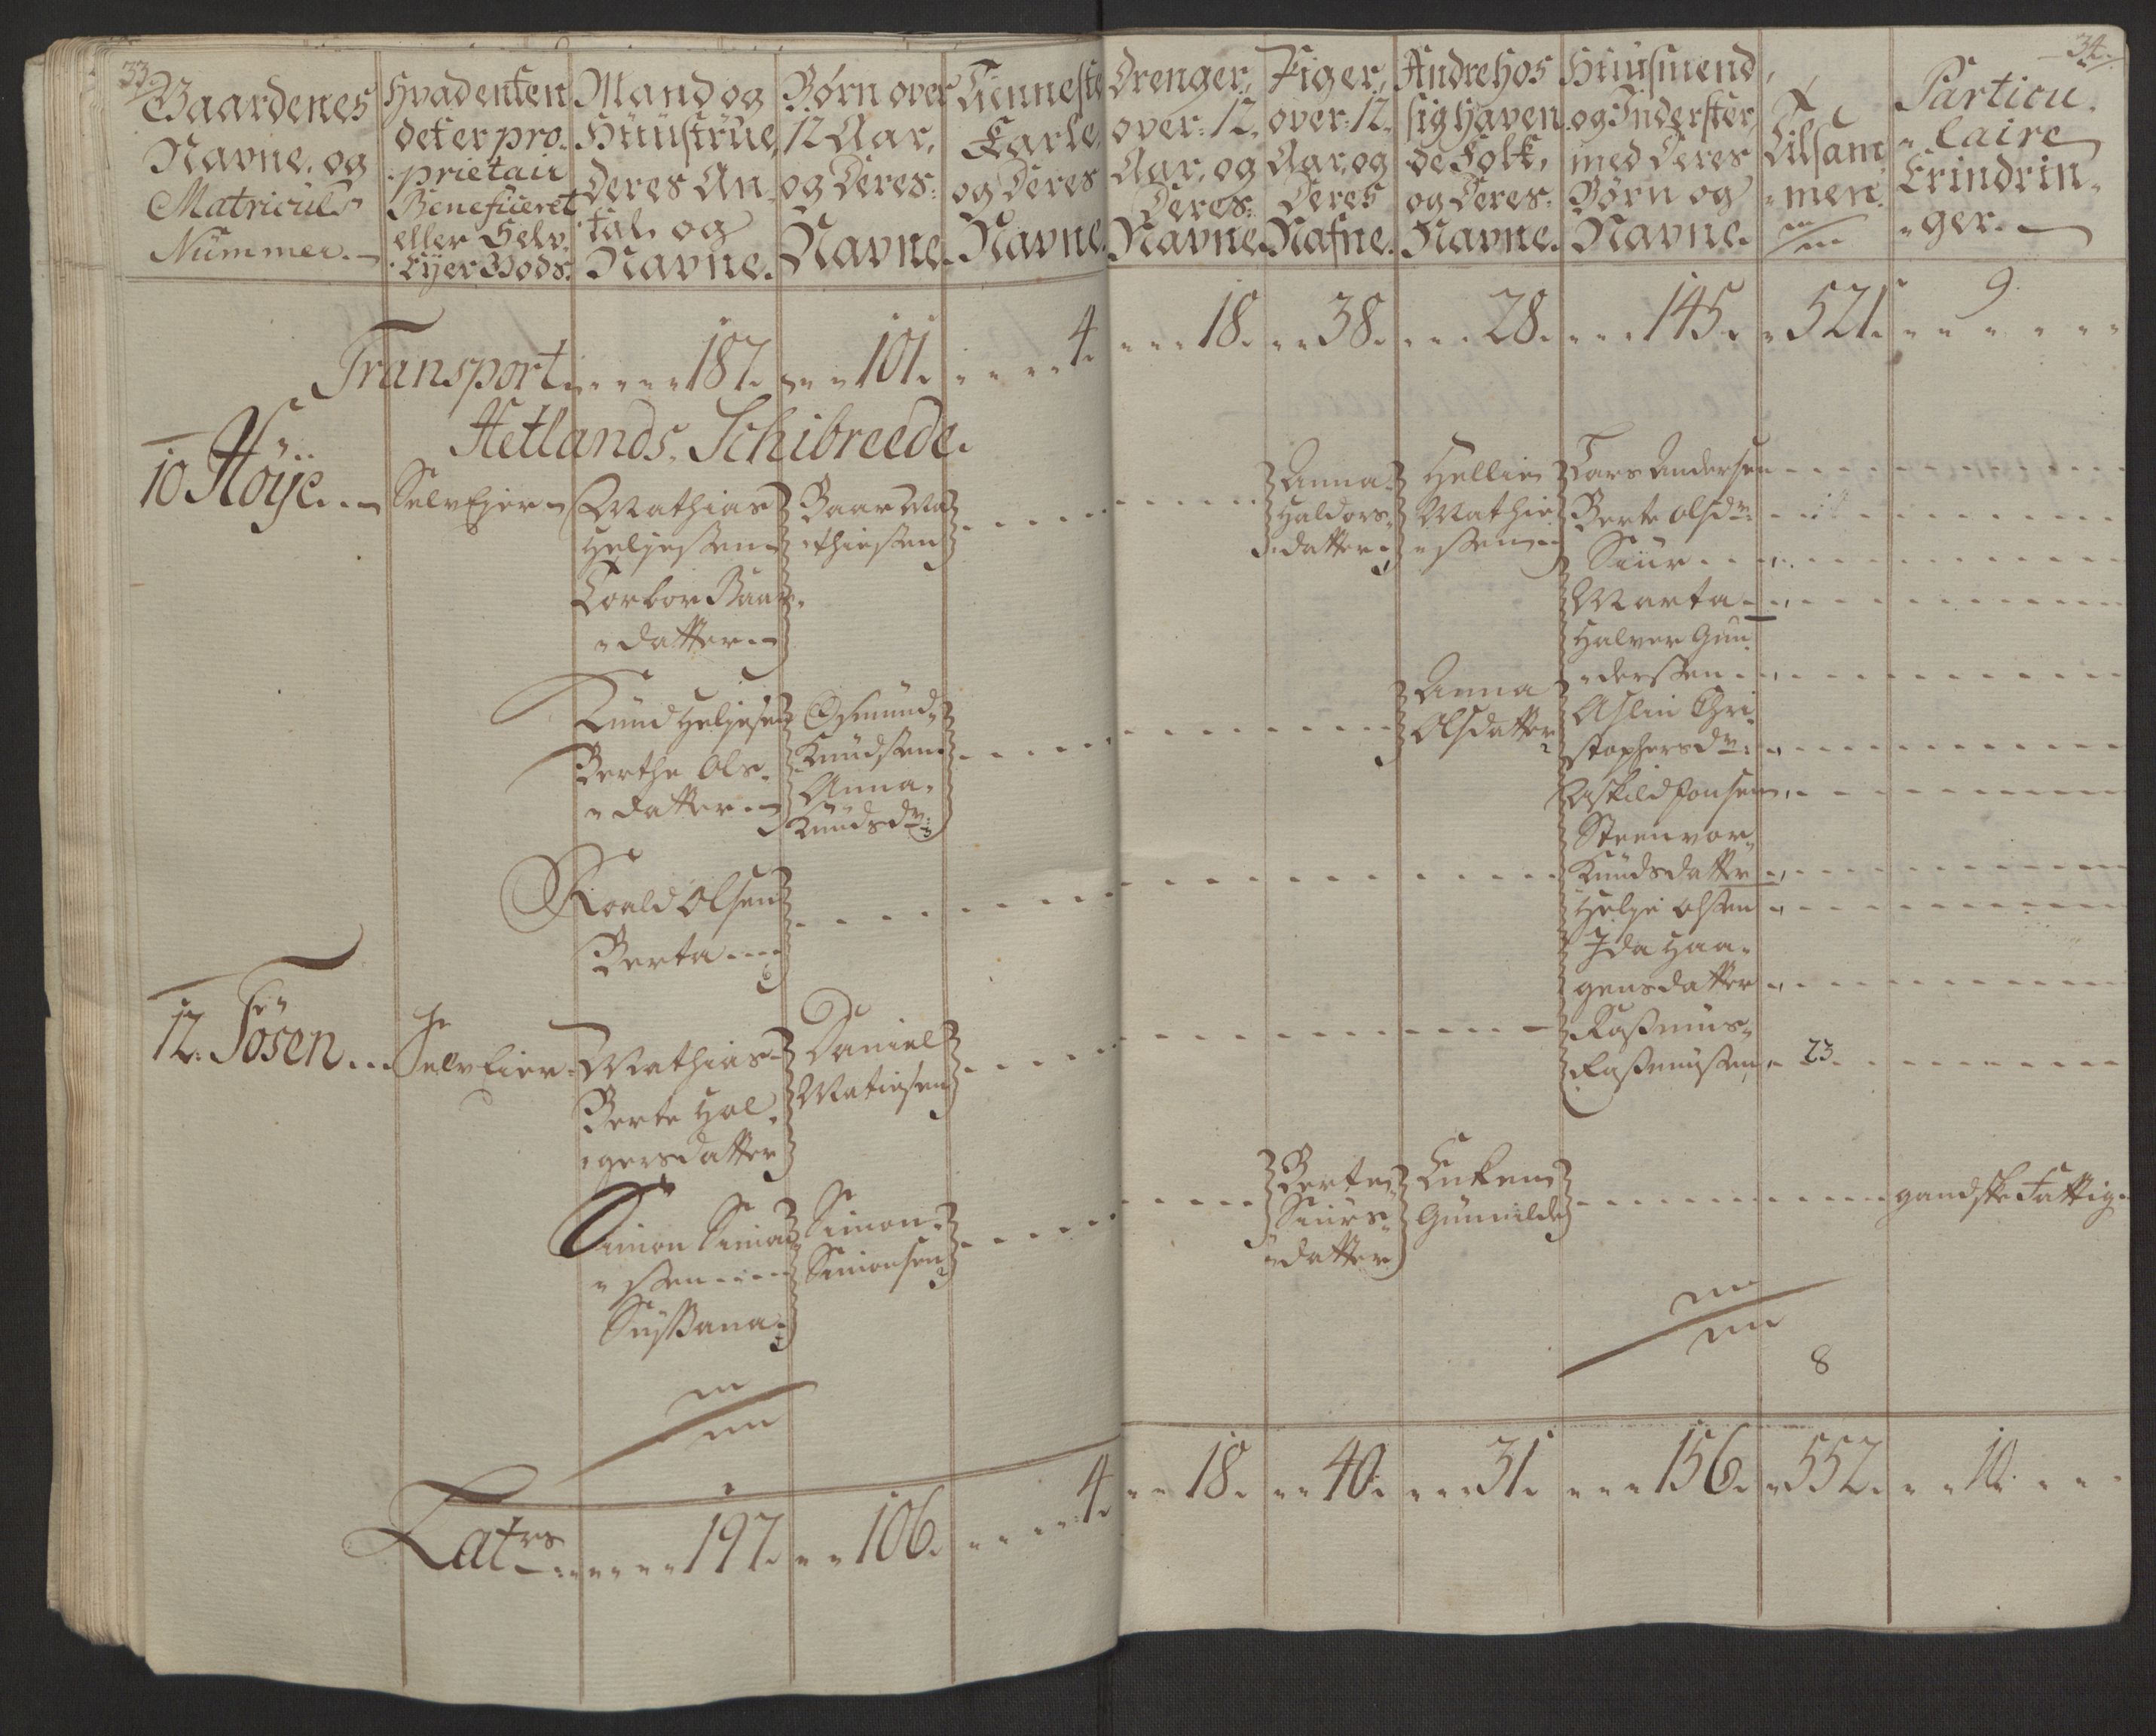 33.
Gaardenes
Navne, og
Matriculs
Nummer.
Hvad enten
det er pro
prietair
Beneficeret
eller Selv
Eyer Gods.
Mand og
Huustrue,
Deres An
tal. og
Navne.
Børn over
12 Aar,
og Deres
Navne.
Tienneste
Karle,
og Deres
Navne.
Drenger,
over 12,
Aar, og
Deres
Navne.
Piger,
over 12,
Aar, og
Deres
Nafne.
Andre hos
sig haven
de Folk,
og Deres
Navne.
Huusmend
og Inderster,
med Deres
Børn og
Navne.
Tilsam
men.
34.
Particu
laire
Erindrin
ger.
Transport 187. 101. 4. 18. 38. 28. 145. 521. 9.
Hetlands Schibreede.
10 Höije
SelvEjer
Mathias
Heljessen
Torbor Baar
datter
Baar Ma
thiessen
Anna
Haldors
datter
Hellie
Mathie
ssen
Lars Andersen
Berte Olsdr
Siur
Marta
Halver Gun
derssen
Aslin Chri
stophersdr
Askild Jonsen
Steenvor
Knudsdatter
Helje Olssen
Ida Haa
gensdatter
Rasmus
Rasmussen 23
Knud Heljesen
Berthe Ols
datter
Osmund
Knudssen
Anna
Knudsdr
Anna
Olsdatter
Roald Olsen
Berta
12. Tösen
SelvEier
Mathias
Berte Hol
gersdatter
Daniel
Matiesen
Simon Simon
ssen
Sussana
Simon
Simonsen
Berte
Siurs
datter
Enken
Gunnilde
gandske Fattig
8
Latrs 197. 106. 4. 18. 40. 31. 156. 552. 10.